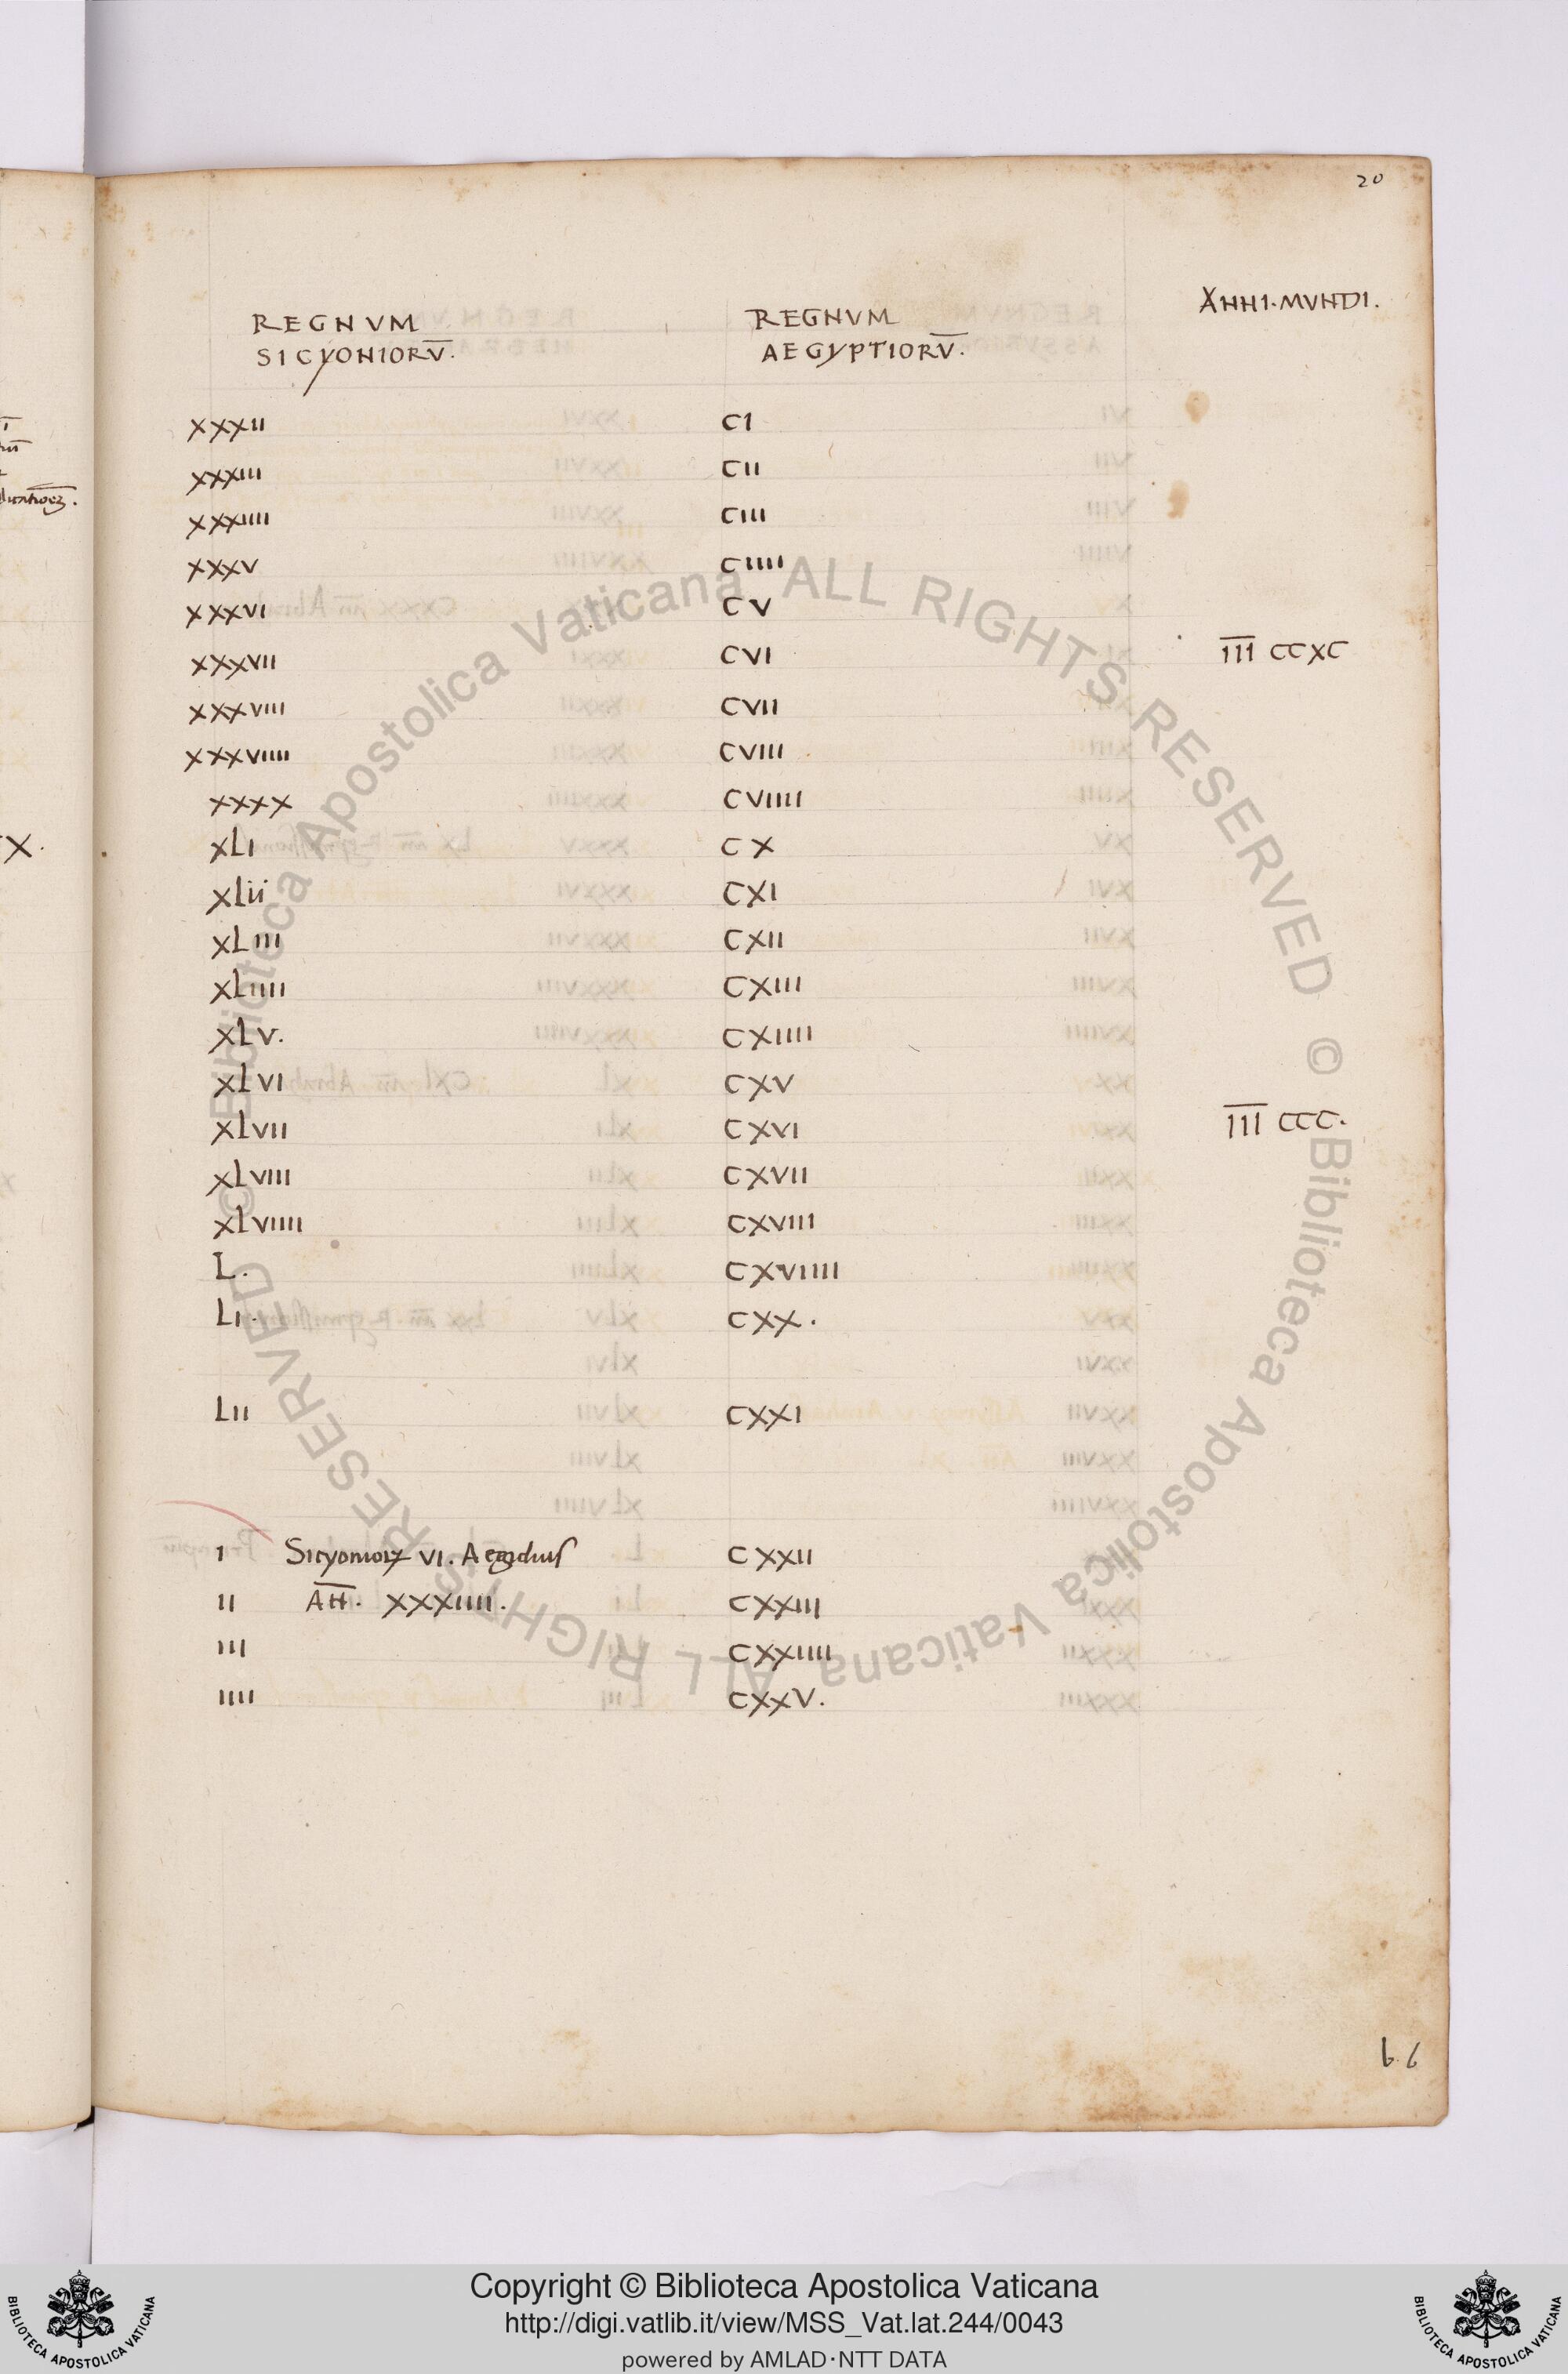 20
REGNVM REGNVM ANNI·MVNDI.
SICYONIORV̅. AEGYPTIORV̅.
XXXII CI
XXXIII CII
XXXIIII CIII
XXXV CIIII
XXXVI CV
XXXVII CVI I̅I̅I̅ CCXC
XXXVIII CVII
XXXVIIII CVIII
XXXX CVIIII
XLI CX
XLii CXI
XLIII CXII
XLIIII CXIII
XLV. CXIIII
XLVI CXV
XLVII CXVI I̅I̅I̅ CCC.
XLVIII CXVII
XLVIIII CXVIII
L. CXVIIII
LI. CXX.
LII CXXI
I Sicyonioꝝ VI. Aegidius CXXII
II A̅N̅. XXXIIII. CXXIII
III CXXIIII
IIII CXXV.
X.
b 6
© Biblioteca Apostolica Vaticana ALL RIGHTS RESERVED
© Biblioteca Apostolica Vaticana ALL RIGHTS RESERVED
Copyright © Biblioteca Apostolica Vaticana
http://digi.vatlib.it/view/MSS_Vat.lat.244/0043
powered by AMLAD·NTT DATA
BIBLIOTECA APOSTOLICA VATICANA
BIBLIOTECA APOSTOLICA VATICANA